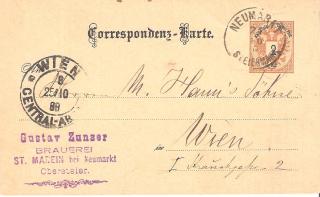 Correspondenz-Karte.
NEUMARKT
STEIERMARK
2
WIEN
9
25/10
89
CENTRAL-AB
M. Hanns' Söhne
in
Wien.
I
2
Gustav Zunzer
BRAUEREI
ST. MAREIN bei Neumarkt
Obersteier.